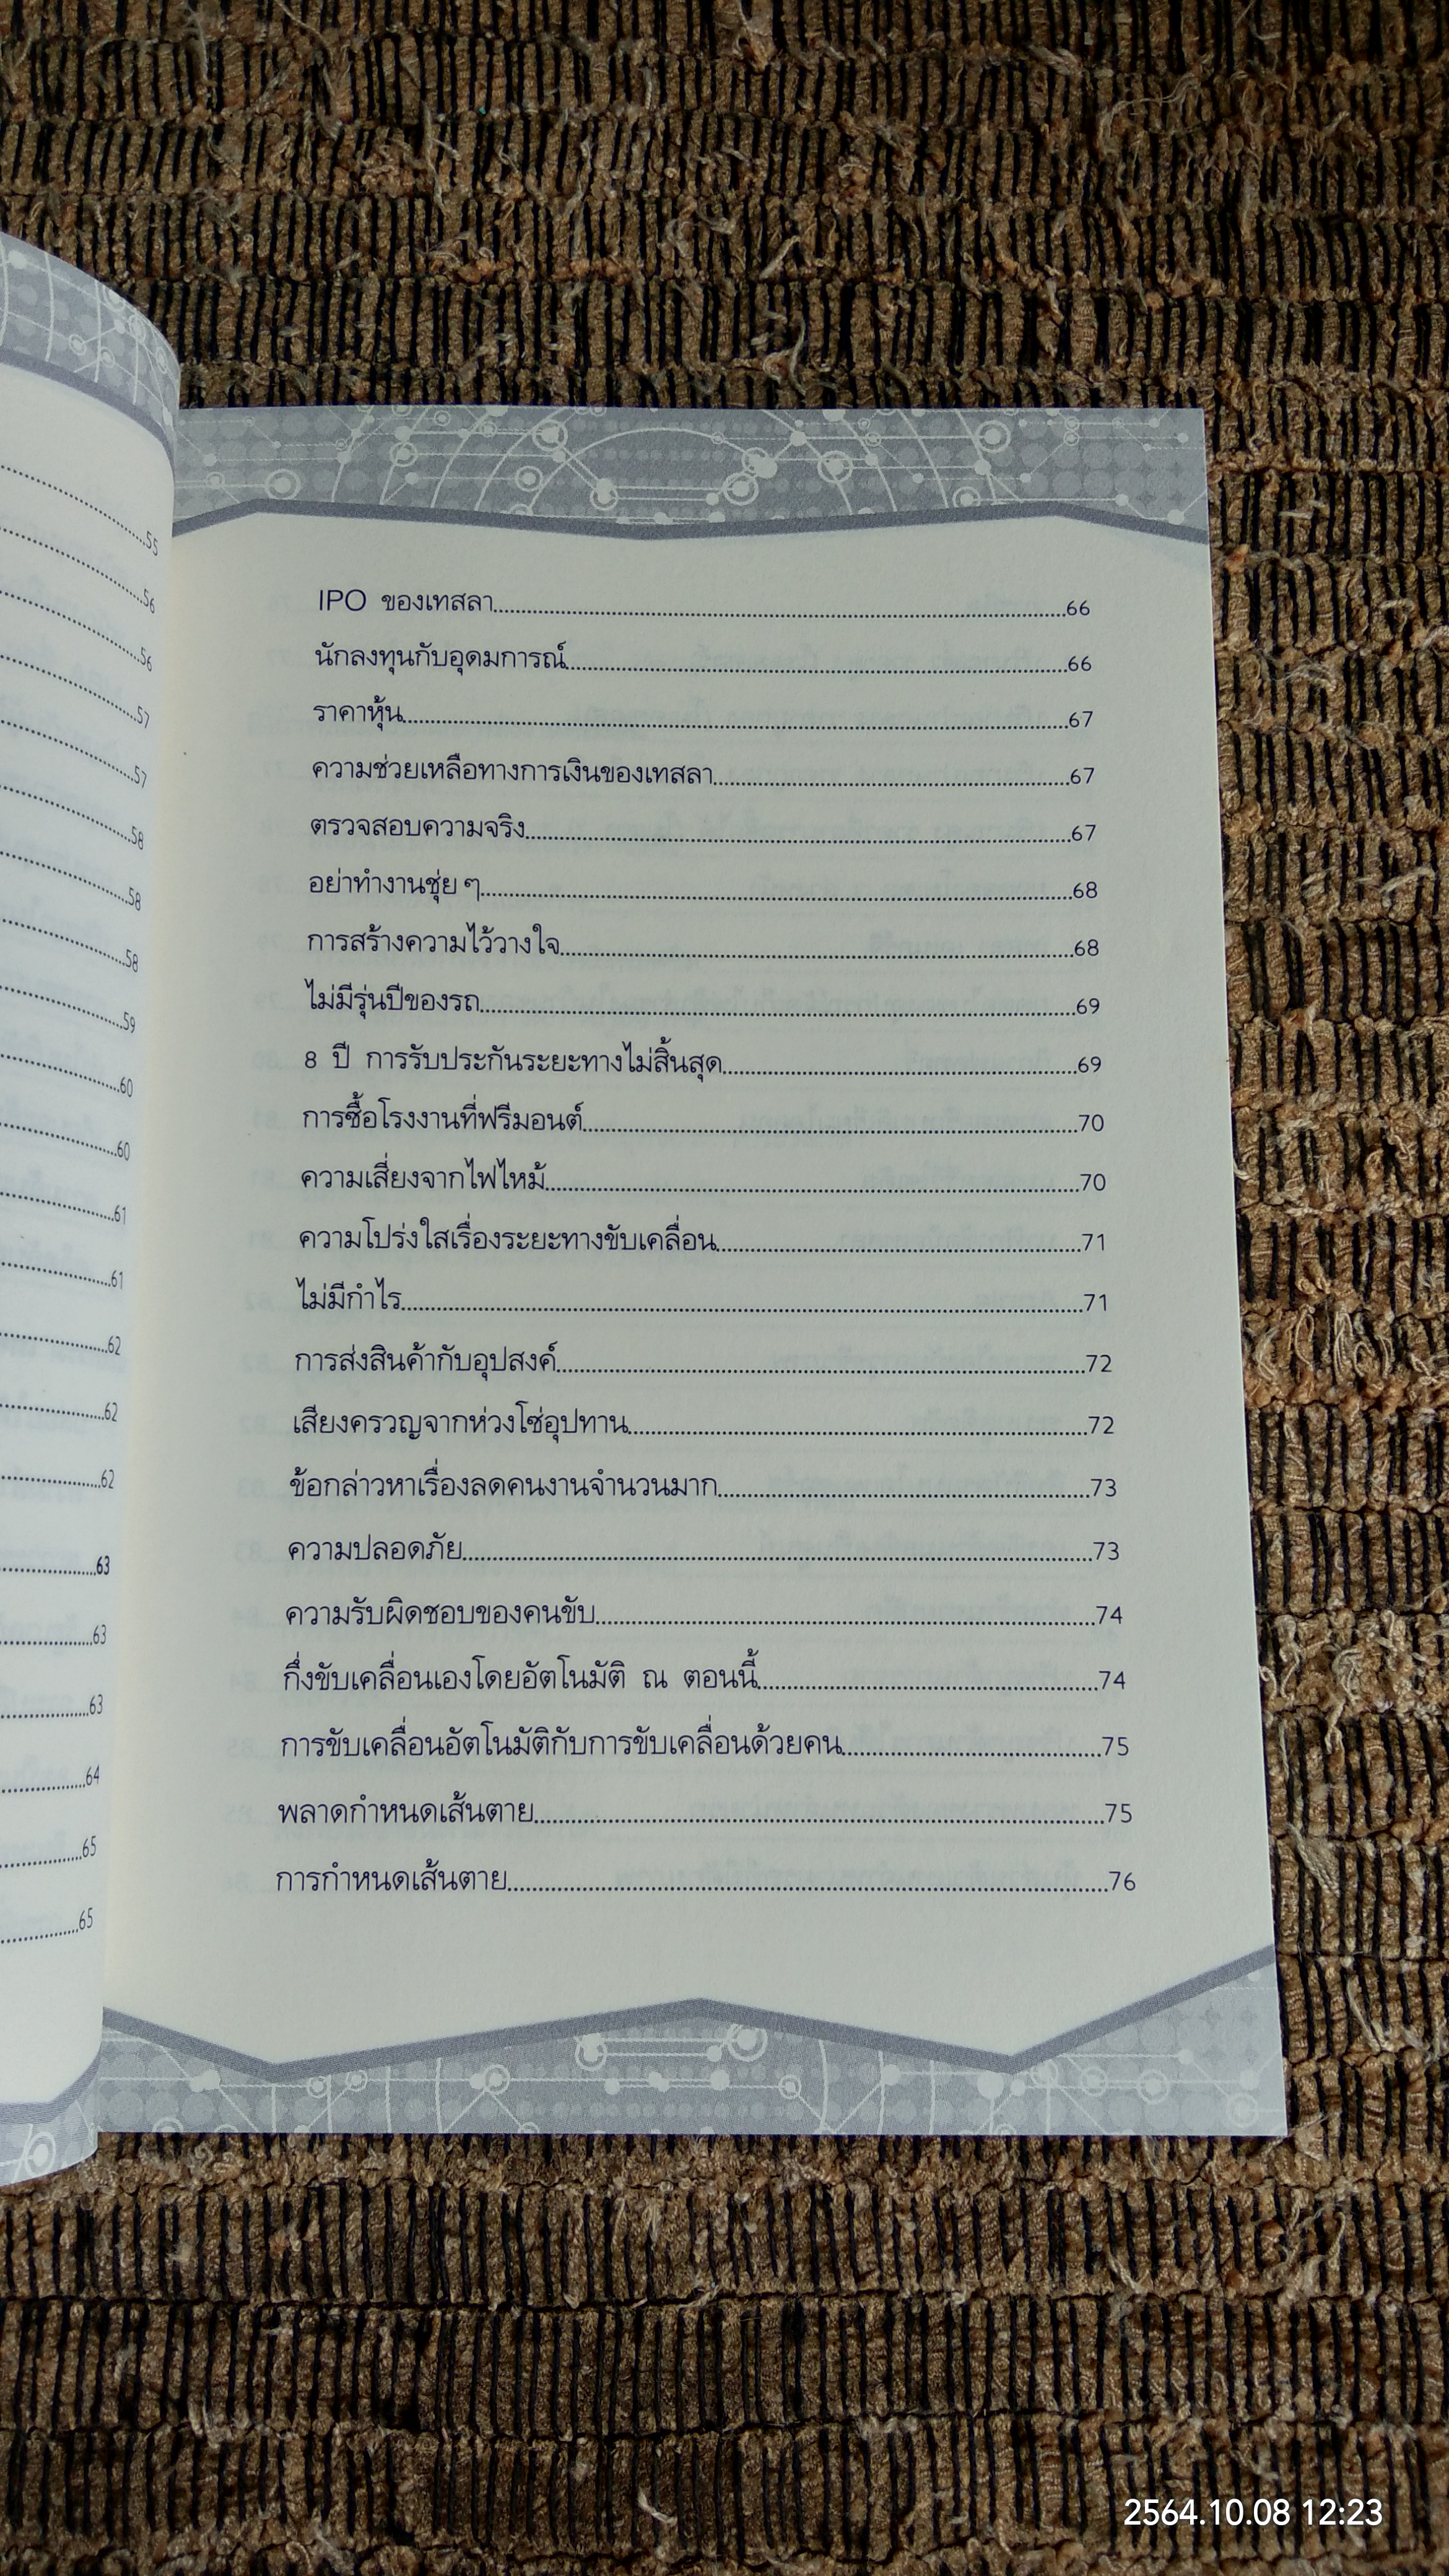 55
56
56
57
57
58
58
58
59
60
60
61
61
62
62
62
63
63
63
64
65
65
IPO ของเทสลา 66
นักลงทุนกับอุดมการณ์ 66
ราคาหุ้น 67
ความช่วยเหลือทางการเงินของเทสลา 67
ตรวจสอบความจริง 67
อย่าทำงานชุ่ย ๆ 68
การสร้างความไว้วางใจ 68
ไม่มีรุ่นปีของรถ 69
8 ปี การรับประกันระยะทางไม่สิ้นสุด 69
การซื้อโรงงานที่ฟรีมอนต์ 70
ความเสี่ยงจากไฟไหม้ 70
ความโปร่งใสเรื่องระยะทางขับเคลื่อน 71
ไม่มีกำไร 71
การส่งสินค้ากับอุปสงค์ 72
เสียงครวญจากห่วงโซ่อุปทาน 72
ข้อกล่าวหาเรื่องลดคนงานจำนวนมาก 73
ความปลอดภัย 73
ความรับผิดชอบของคนขับ 74
กึ่งขับเคลื่อนเองโดยอัตโนมัติ ณ ตอนนี้ 74
การขับเคลื่อนอัตโนมัติกับการขับเคลื่อนด้วยคน 75
พลาดกำหนดเส้นตาย 75
การกำหนดเส้นตาย 76
2564.10.08 12:23